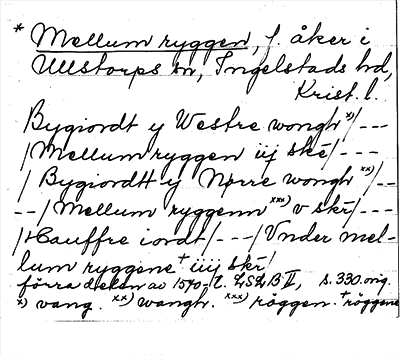 * Mellum ryggen, f. åker i
Ullstorps sn, Ingelstads hd,
Krist. l.
Bygiordt y Westre wongh x)/---
/Mellum ryggen iij skē/---
/Bygiordtt y Nørre wongh xx)/--
--/Mellum ryggenn xxx) v skē/---
/Hauffre iordt/---/Vnder mel-
lum ryggene + iiij skē/
förra delen av 1570-t. LSLB II, s. 330. orig.
x) vang. xx) wangh. xxx) röggen. + röggene